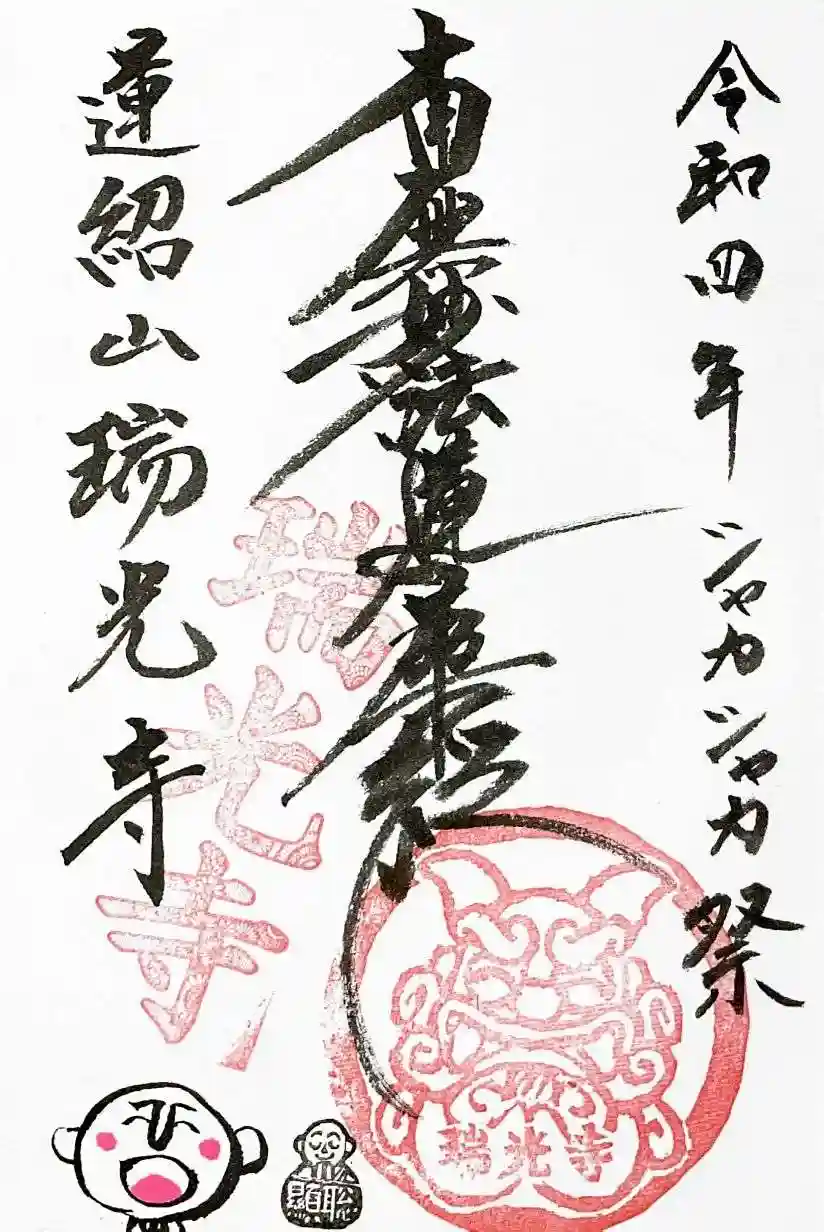 令和四年 ジャカジャカ祭
南無妙法蓮華経
蓮紹山瑞光寺
瑞光寺
瑞光寺